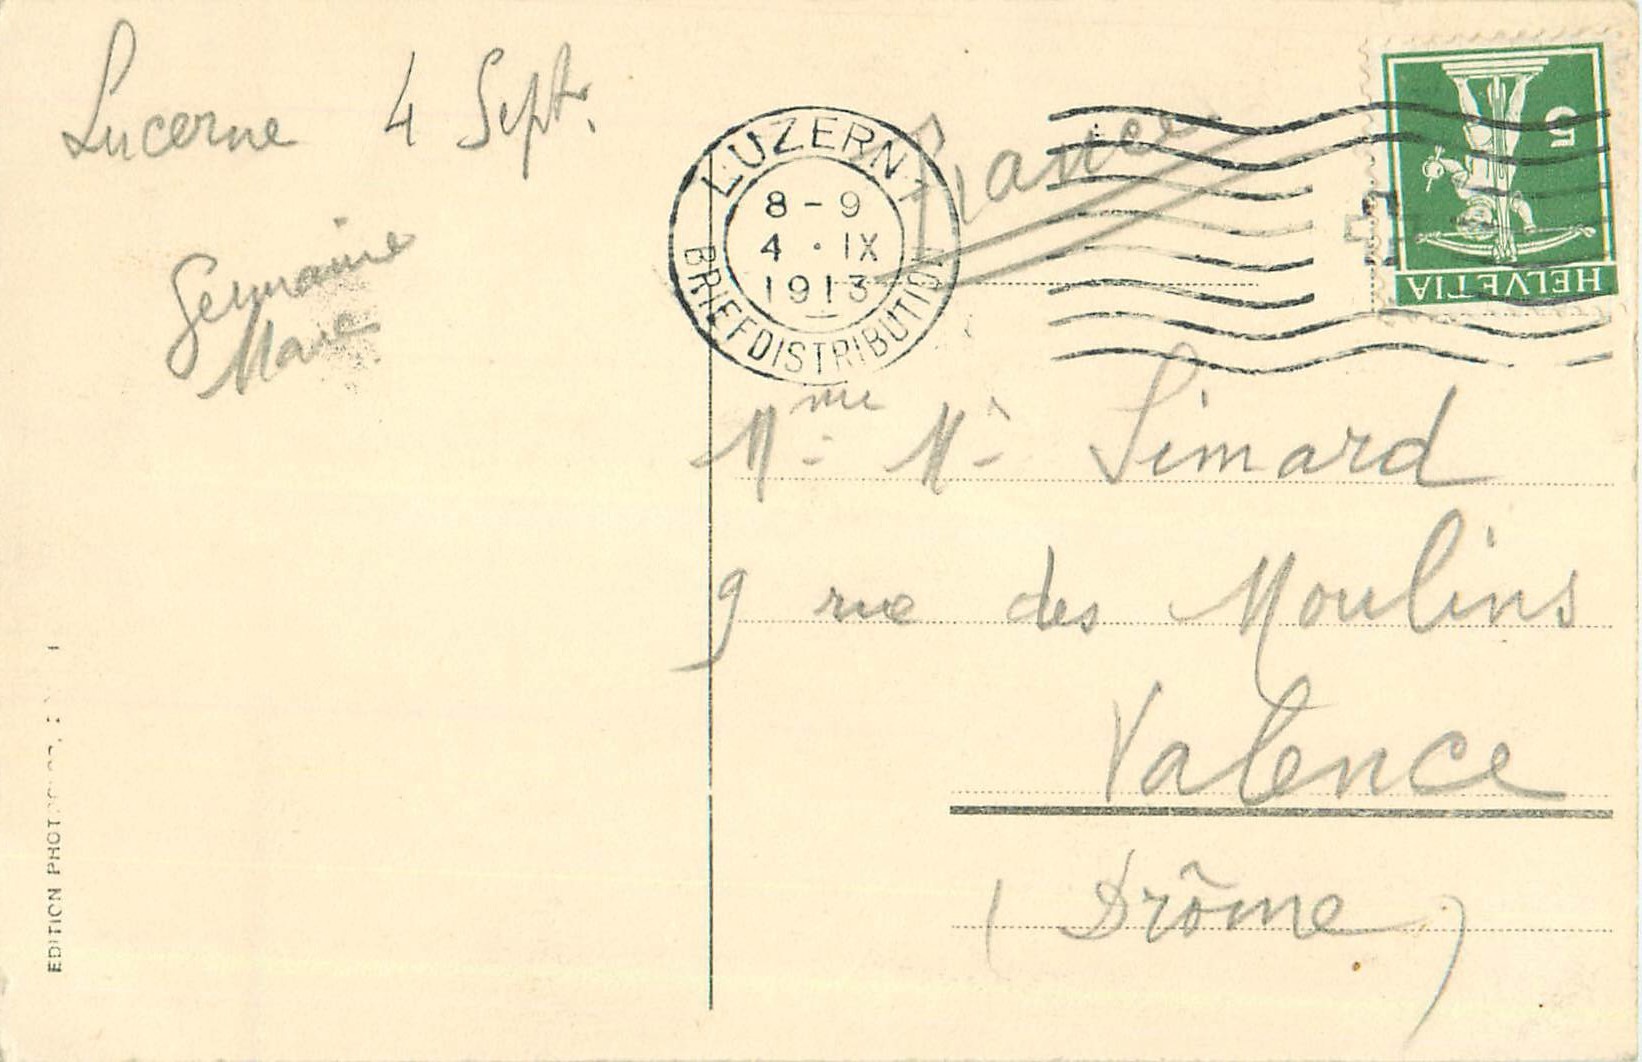 Lucerne 4 Septr.
Germaine
Marie
LUZERN 1
8-9
4 · IX
1913
BRIEFDISTRIBUTION
France
5
HELVETIA
Mme M. Simard
9 rue des Moulins
Valence
(Drôme)
EDITION